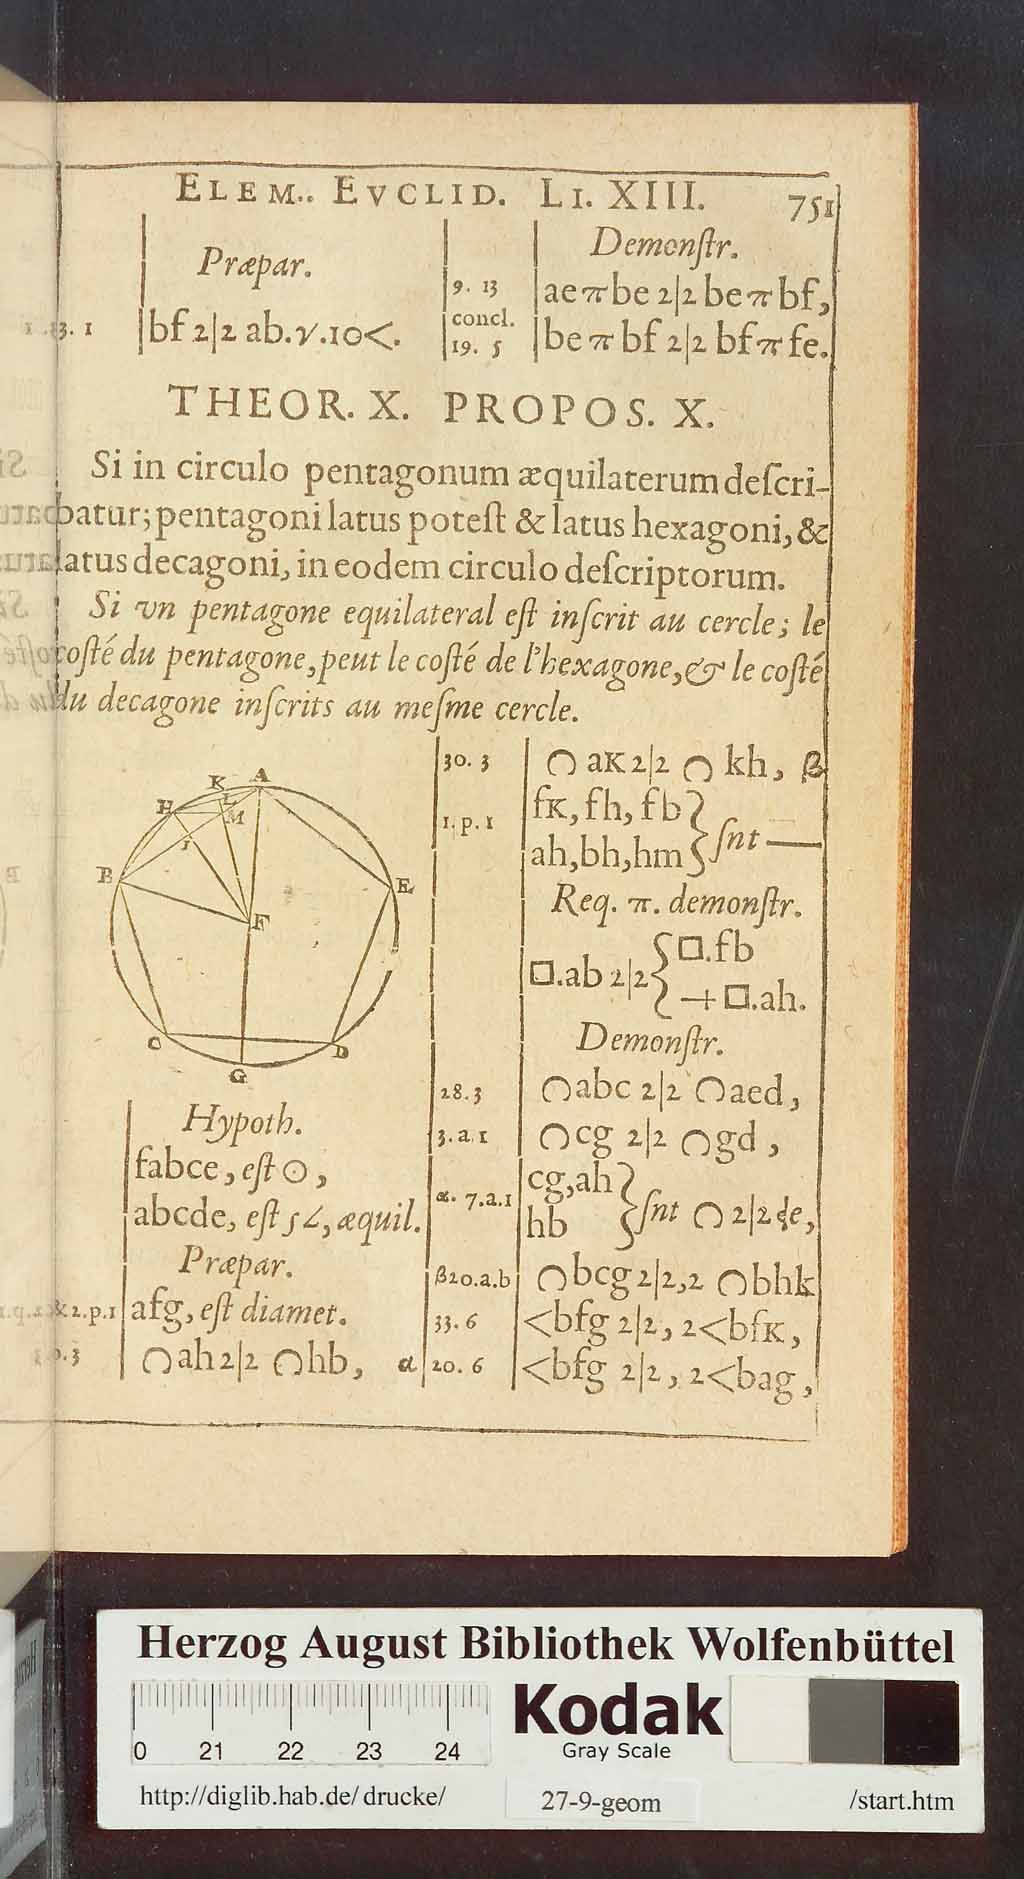 ELEM.. EVCLID. LI. XIII. 751
Præpar.
3. 1 bf 2|2 ab.ν.10<.
Demonſtr.
9. 13 ae π be 2|2 be π bf,
concl.
19. 5 be π bf 2|2 bf π fe.
THEOR. X. PROPOS. X.
Si in circulo pentagonum æquilaterum deſcri-
batur; pentagoni latus poteſt & latus hexagoni, &
latus decagoni, in eodem circulo deſcriptorum.
Si vn pentagone equilateral eſt inſcrit au cercle; le
coſté du pentagone, peut le coſté de l'hexagone, & le coſté
du decagone inſcrits au meſme cercle.
K A
H L
M
I
B E
F
C D
G
Hypoth.
fabce, eſt ⊙,
abcde, eſt 5∠, æquil.
Præpar.
& 2.p.1 afg, eſt diamet.
.3 ⌒ah 2|2 ⌒hb, α
30. 3 ⌒ aK 2|2 ⌒ kh, β
1. p. 1 fK, fh, fb
ah, bh, hm } ſnt —
Req. π. demonſtr.
□.ab 2|2 { □.fb
+ □.ah.
Demonſtr.
28. 3 ⌒abc 2|2 ⌒aed,
3. a. 1 ⌒cg 2|2 ⌒gd,
α. 7.a.1 cg, ah
hb } ſnt ⌒ 2|2 de,
β20.a.b ⌒bcg 2|2, 2 ⌒bhk
33. 6 <bfg 2|2, 2<bfK,
20. 6 <bfg 2|2, 2<bag,
Herzog August Bibliothek Wolfenbüttel
0 21 22 23 24
Kodak
Gray Scale
http://diglib.hab.de/drucke/ 27-9-geom /start.htm